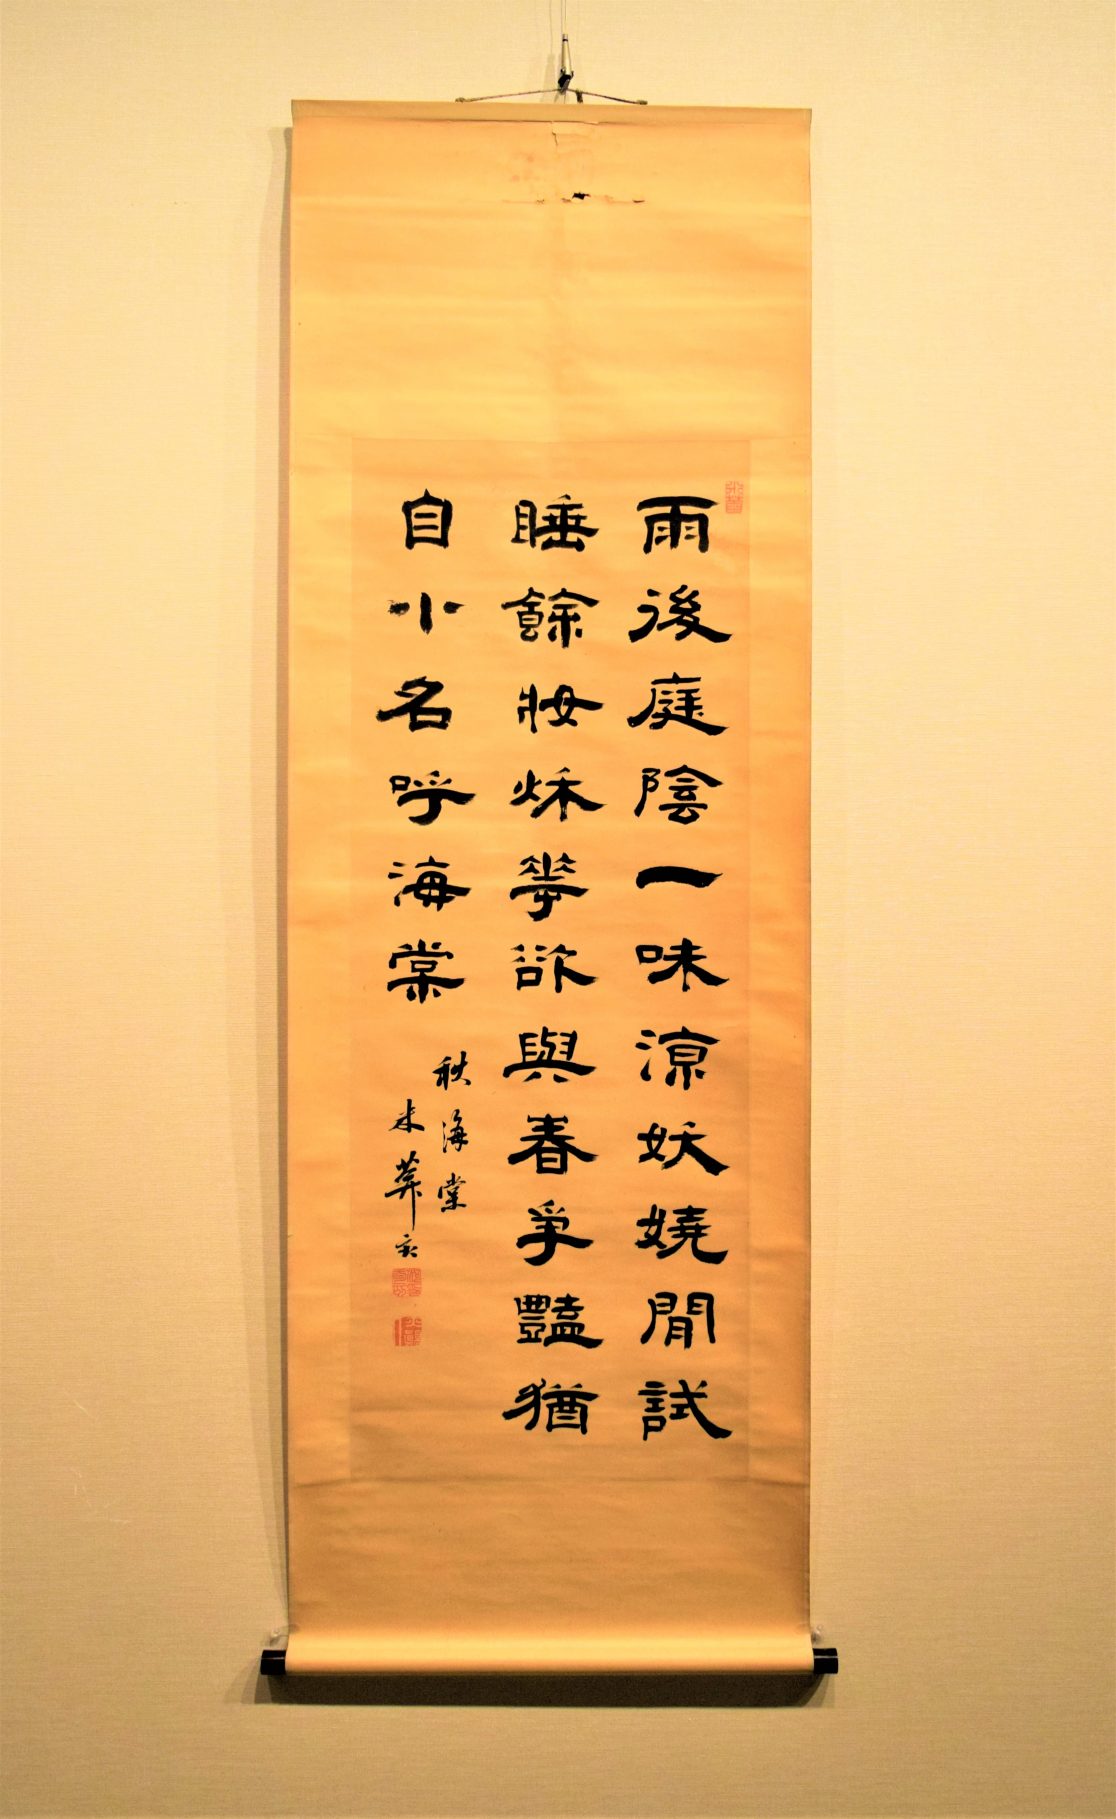 雨後庭陰一味涼妖嬈閒試
睡餘妝秌華欲與春爭豔猶
自小名呼海棠
秋海棠
米葊